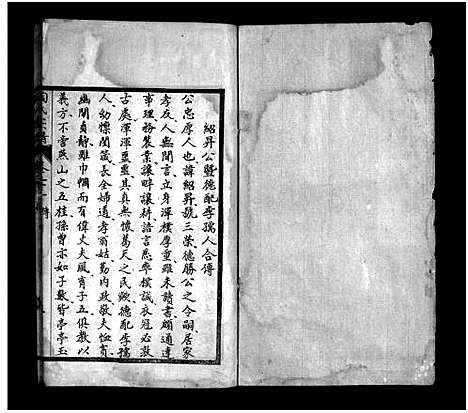 紹昇公暨德配李孺人合傳
公忠厚人也諱紹昇號三榮德勝公之令嗣居家
孝友人無間言立身渾樸厚重雖未讀書頗通達
事理務農業讓畔讓耕語言悉率樸誠衣冠必敦
古處渾渾噩噩其真無懷葛天之民歟德配李孺
人幼憬閨箴長全婦道孝翁姑勤內政敬夫恤貧
幽閒貞靜雖巾幗而有偉丈夫風育子五俱教以
義方不啻燕山之五桂孫曾亦如子數皆亭亭玉